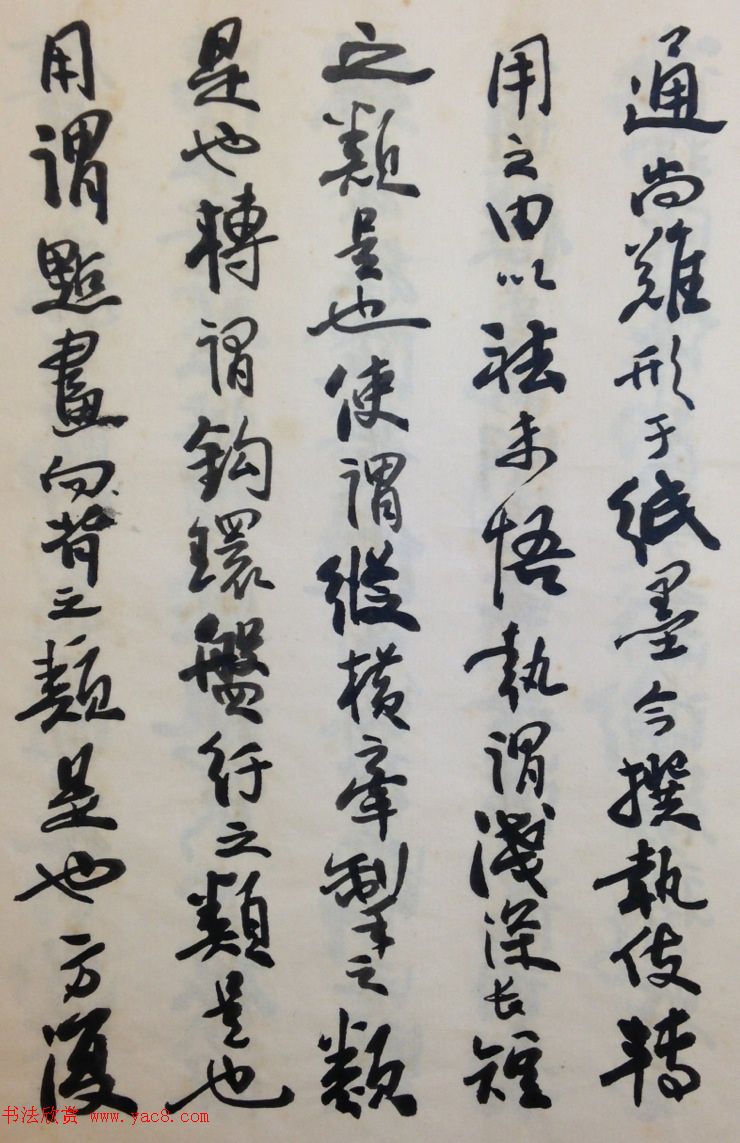 通尚難形于紙墨今撰執使轉
用之由以祛未悟執謂淺深長短
之類是也使謂縱橫之牽掣之類
是也轉謂鈎鐶盤紆之類是也
用謂點畫向背之類是也方復
书法欣赏 www.yac8.com